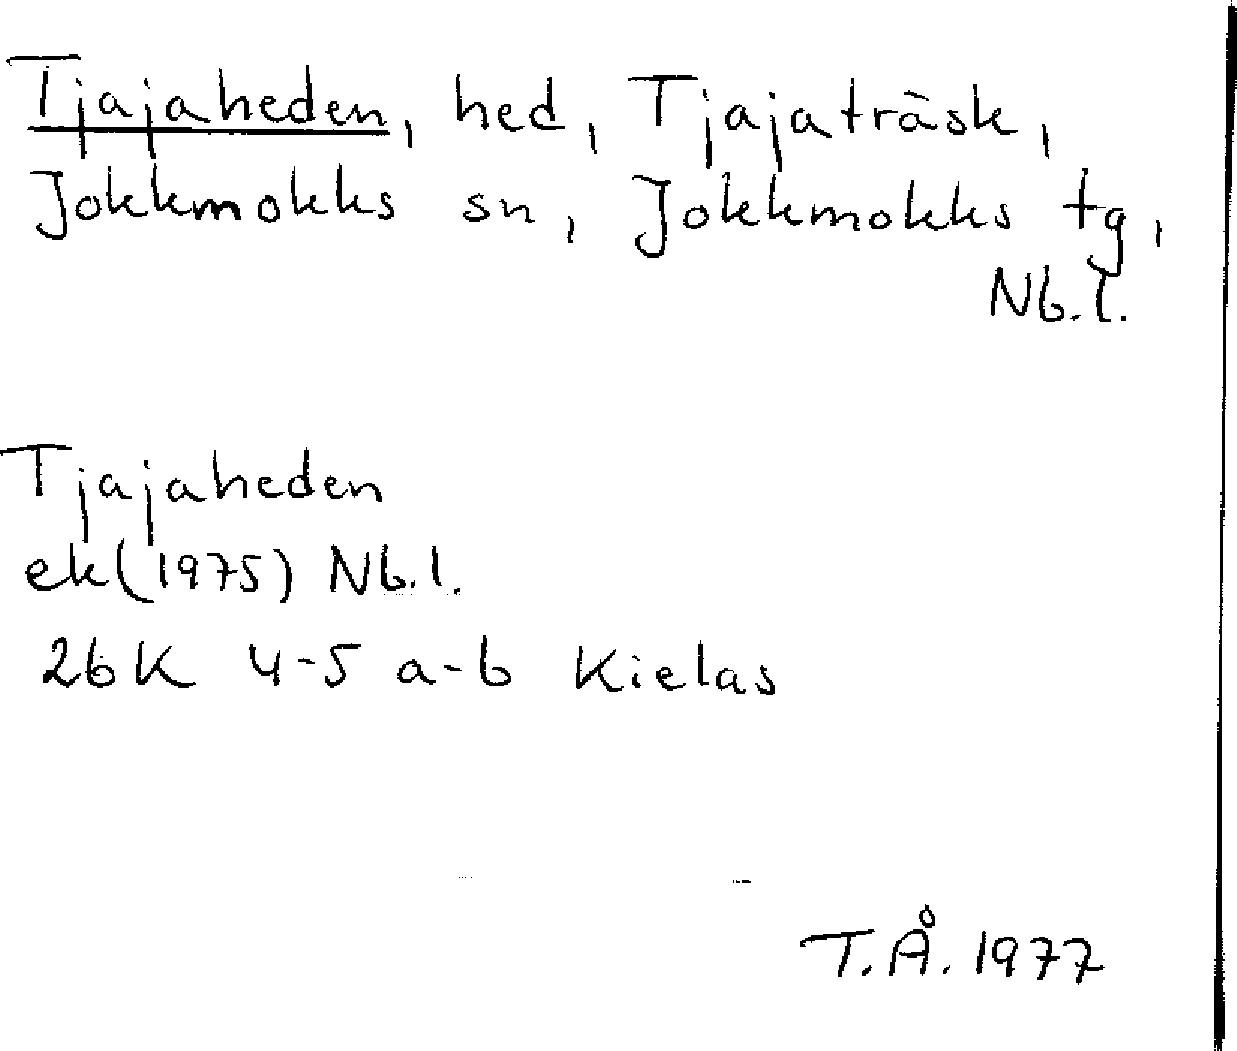 Tjajaheden, hed, Tjajaträsk,
Jokkmokks sn, Jokkmokks tg,
Nb.l.
Tjajaheden
ek(1975) Nb.l.
26K 4-5 a-b Kielas
T.Å. 1977